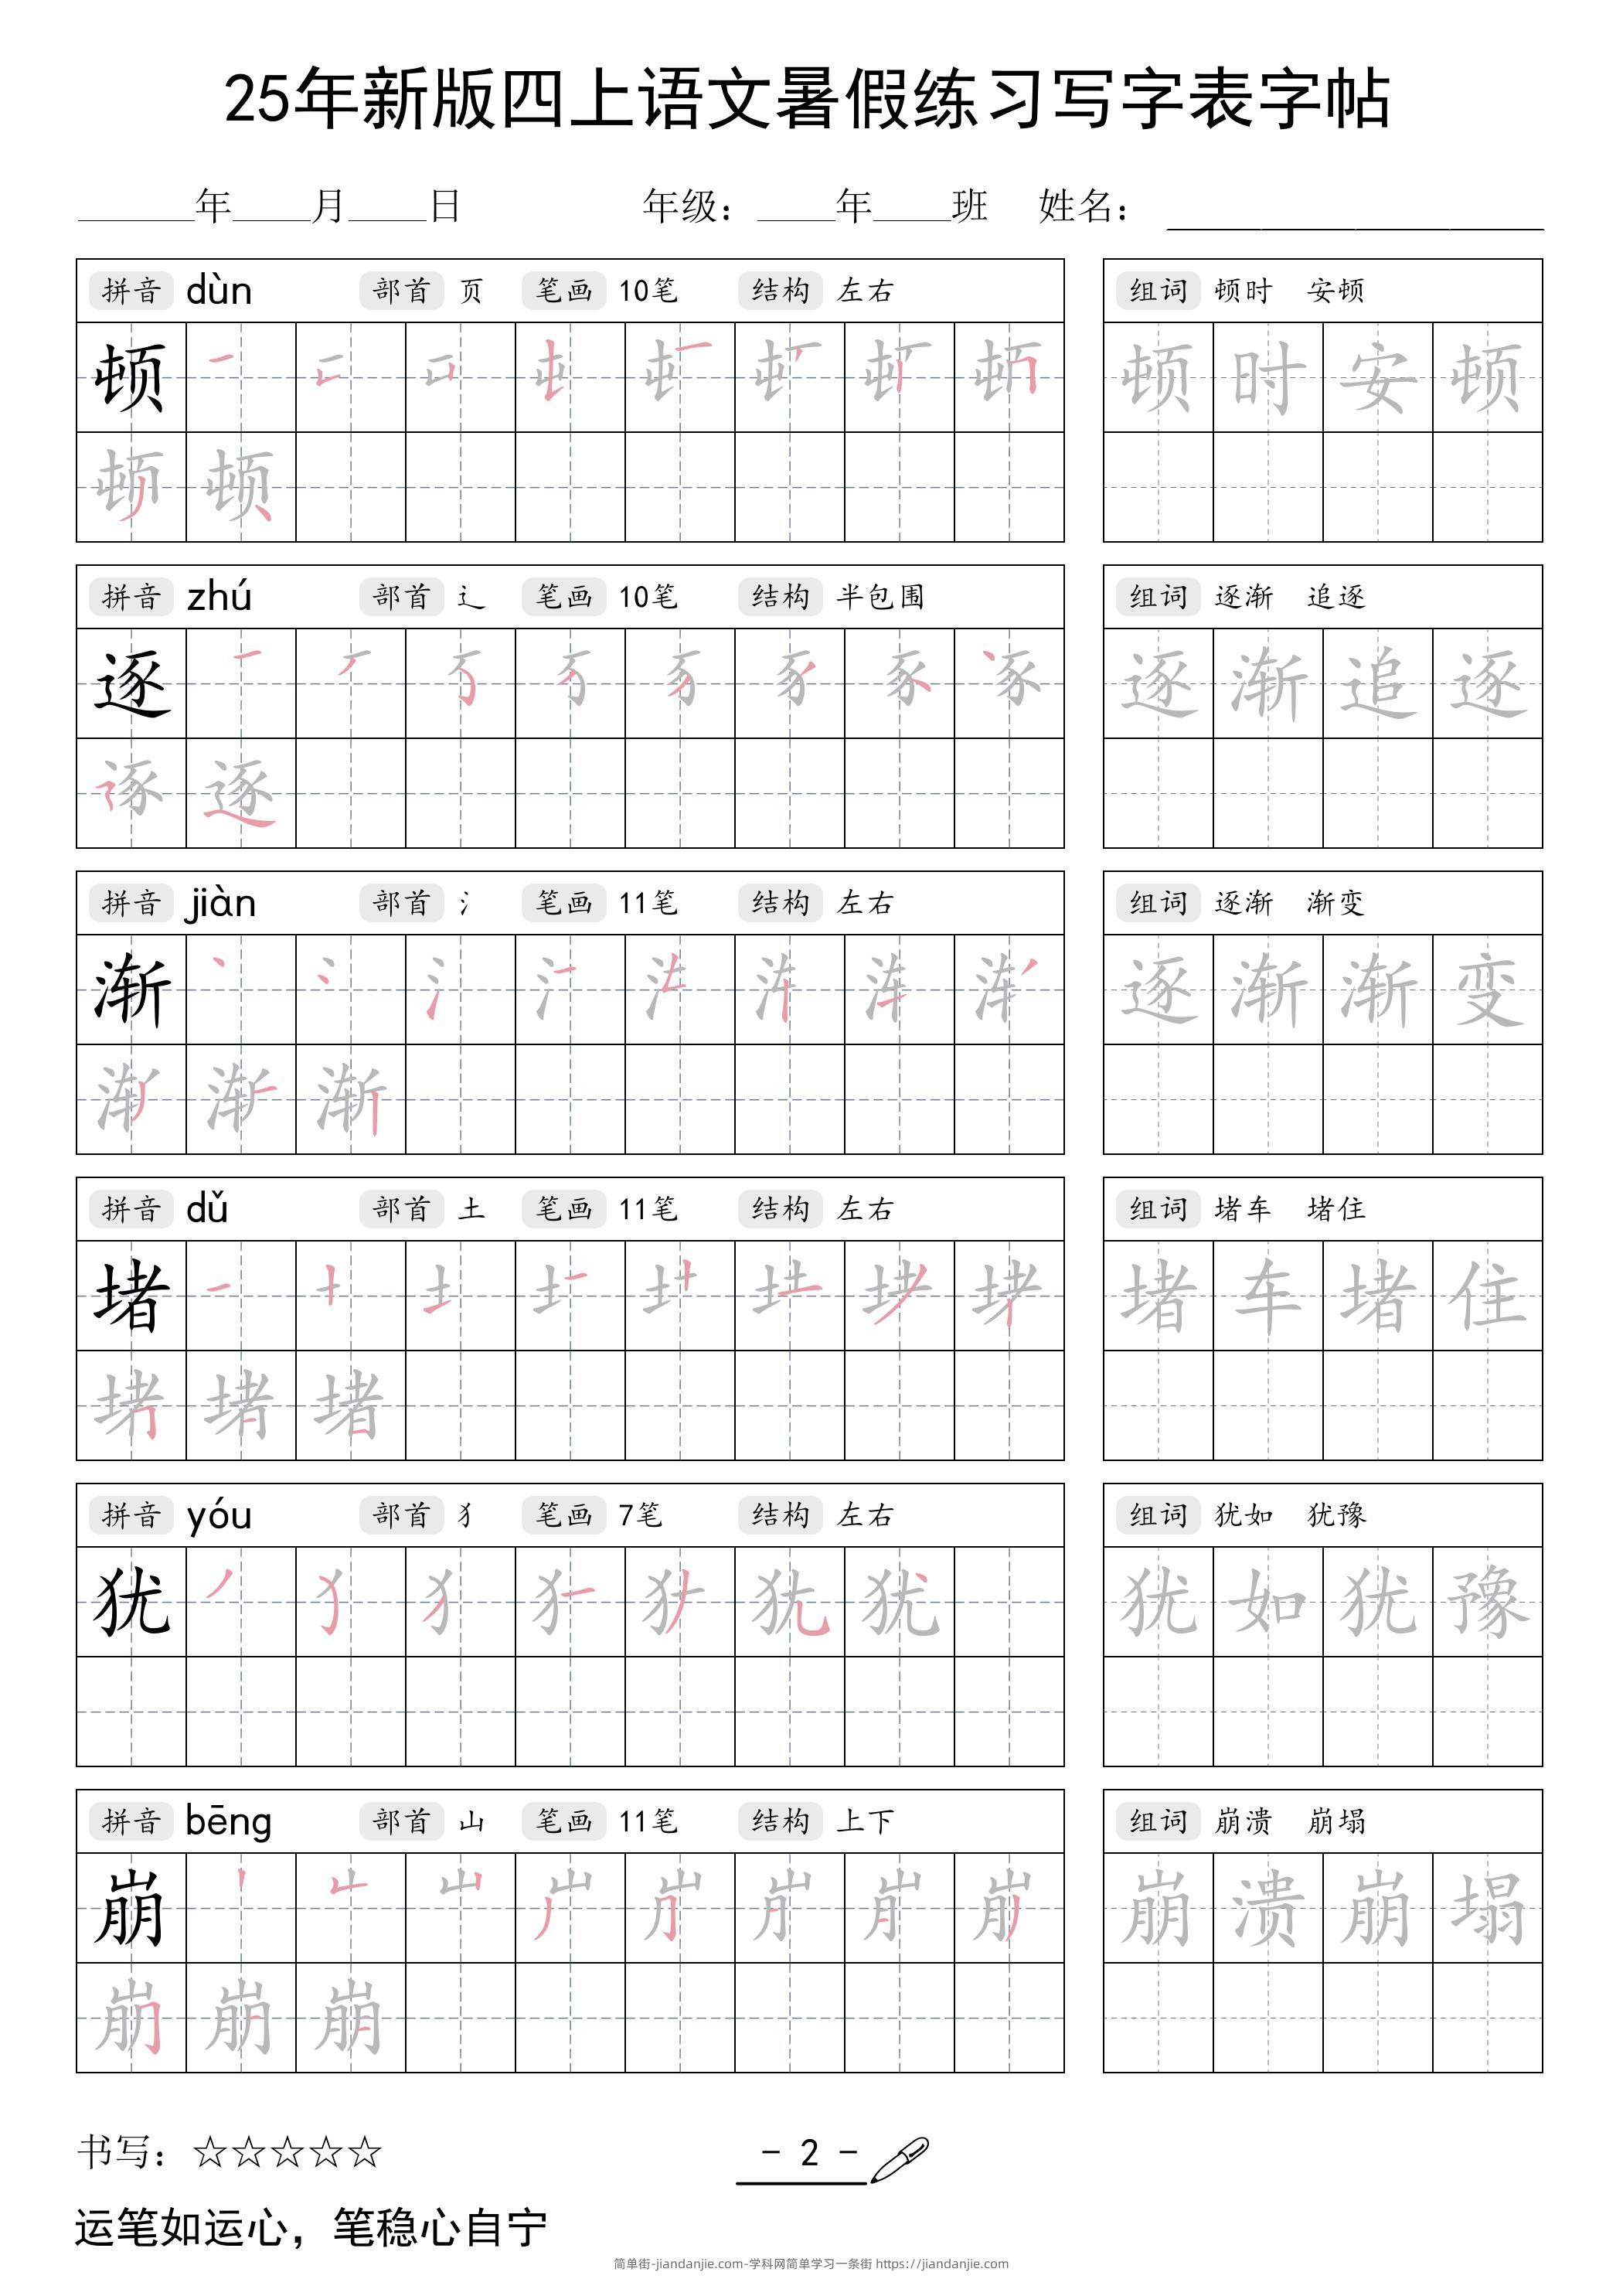 25年新版四上语文暑假练习写字表字帖
年 月 日 年级： 年 班 姓名：
拼音 dùn 部首 页 笔画 10笔 结构 左右 组词 顿时 安顿
顿 顿时安顿
顿 顿
拼音 zhú 部首 辶 笔画 10笔 结构 半包围 组词 逐渐 追逐
逐 逐渐追逐
逐
拼音 jiàn 部首 氵 笔画 11笔 结构 左右 组词 逐渐 渐变
渐 逐渐渐变
渐
拼音 dǔ 部首 土 笔画 11笔 结构 左右 组词 堵车 堵住
堵 堵车堵住
堵
拼音 yóu 部首 犭 笔画 7笔 结构 左右 组词 犹如 犹豫
犹 犹 犹如犹豫
拼音 bēng 部首 山 笔画 11笔 结构 上下 组词 崩溃 崩塌
崩 崩溃崩塌
崩
书写：☆☆☆☆☆ - 2 -
运笔如运心，笔稳心自宁
简单街-jiandanjie.com-学科网简单学习一条街 https://jiandanjie.com